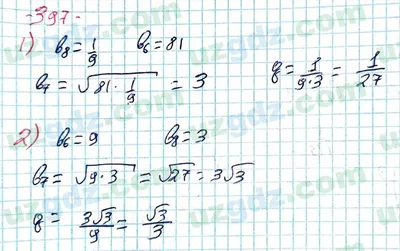 -397-
1) b₈ = 1/9 b₆ = 81
b₇ = √(81 · 1/9) = 3 q = 1/(9·3) = 1/27
2) b₆ = 9 b₈ = 3
b₇ = √(9·3) = √27 = 3√3
q = 3√3/9 = √3/3
uzgdz.com